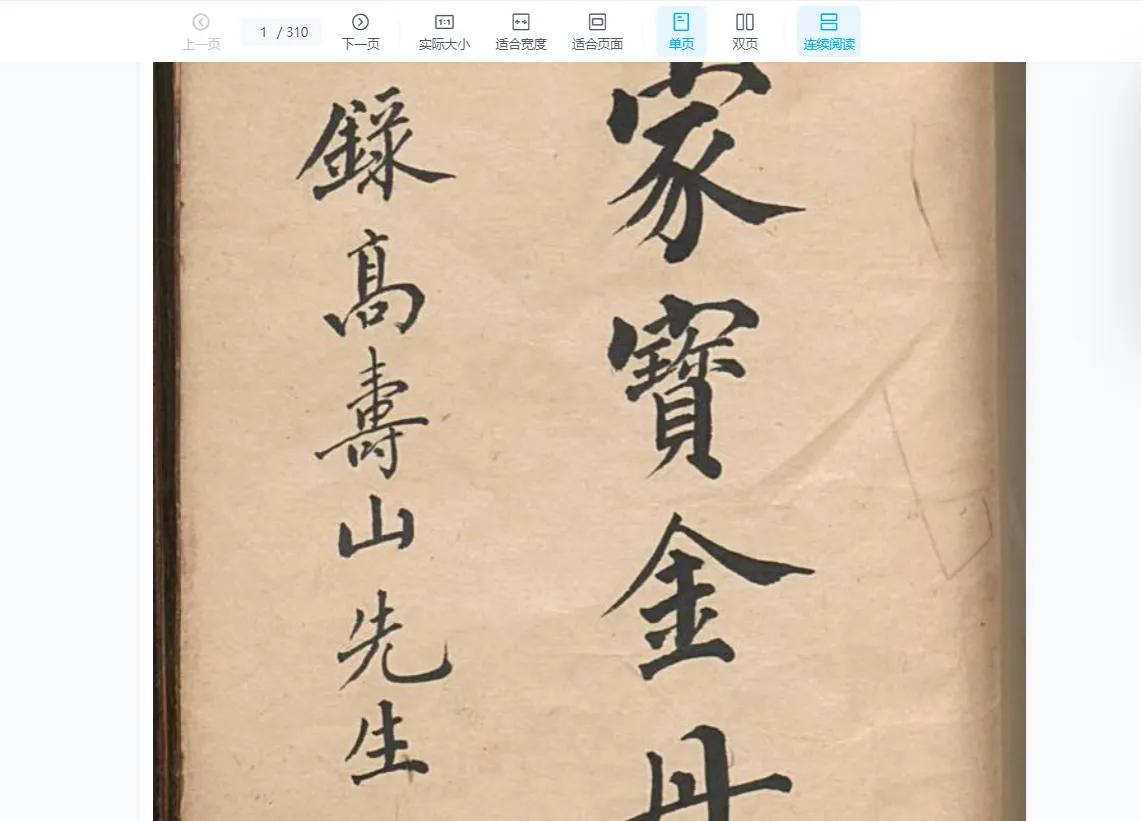 上一页
1 / 310
下一页
实际大小
适合宽度
适合页面
单页
双页
连续阅读
家寶金丹
錄高壽山先生